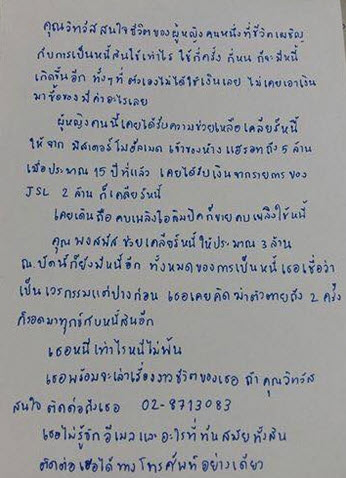 คุณวิทวัสสนใจชีวิตของผู้หญิงคนหนึ่งที่ชีวิตเผชิญ
กับการเป็นหนี้สินใช้เท่าไร ใช้กี่ครั้ง กี่หน ก็จะมีหนี้
เกิดขึ้นอีก ทั้งๆที่ ตัวเองไม่ได้ใช้เงินเลย ไม่เคยเอาเงิน
มาซื้อของมีค่าอะไรเลย
ผู้หญิงคนนี้เคยได้รับความช่วยเหลือ เคลียร์หนี้
ให้จาก มิสเตอร์โมฮัมเมด เจ้าของห้าง แฮรอท ถึง 5 ล้าน
เมื่อประมาณ 15 ปีที่แล้ว เคยได้รับเงินจากรายการของ
JSL 2 ล้าน ก็เคลียร์หนี้
เคยเดินถือคบเพลิงโอลิมปิคก็ขายคบเพลิงใช้หนี้
คุณ พงสพัส ช่วยเคลียร์หนี้ให้ประมาณ 3 ล้าน
ณ.บัดนี้ก็ยังมีหนี้อีก ทั้งหมดของการเป็นหนี้ เธอเชื่อว่า
เป็นเวรกรรมแต่ปางก่อน เธอเคยคิดฆ่าตัวตายถึง 2 ครั้ง
ก็รอดมาทุกข์กับหนี้สินอีก
เธอหนีเท่าไรหนีไม่พ้น
เธอพร้อมจะเล่าเรื่องราวชีวิตของเธอ ถ้า คุณวิทวัส
สนใจ ติดต่อถึงเธอ 02-8713083
เธอไม่รู้จักอีเมลและอะไรที่ทันสมัยทั้งสิ้น
ติดต่อเธอได้ทางโทรศัพท์อย่างเดียว